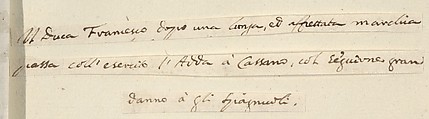 Il Duca Francesco dopo una lunga, ed affrettata marchia
passa coll'esercito l'Adda à Cassano, col seguirne gran
danno à gli Spagnuoli.